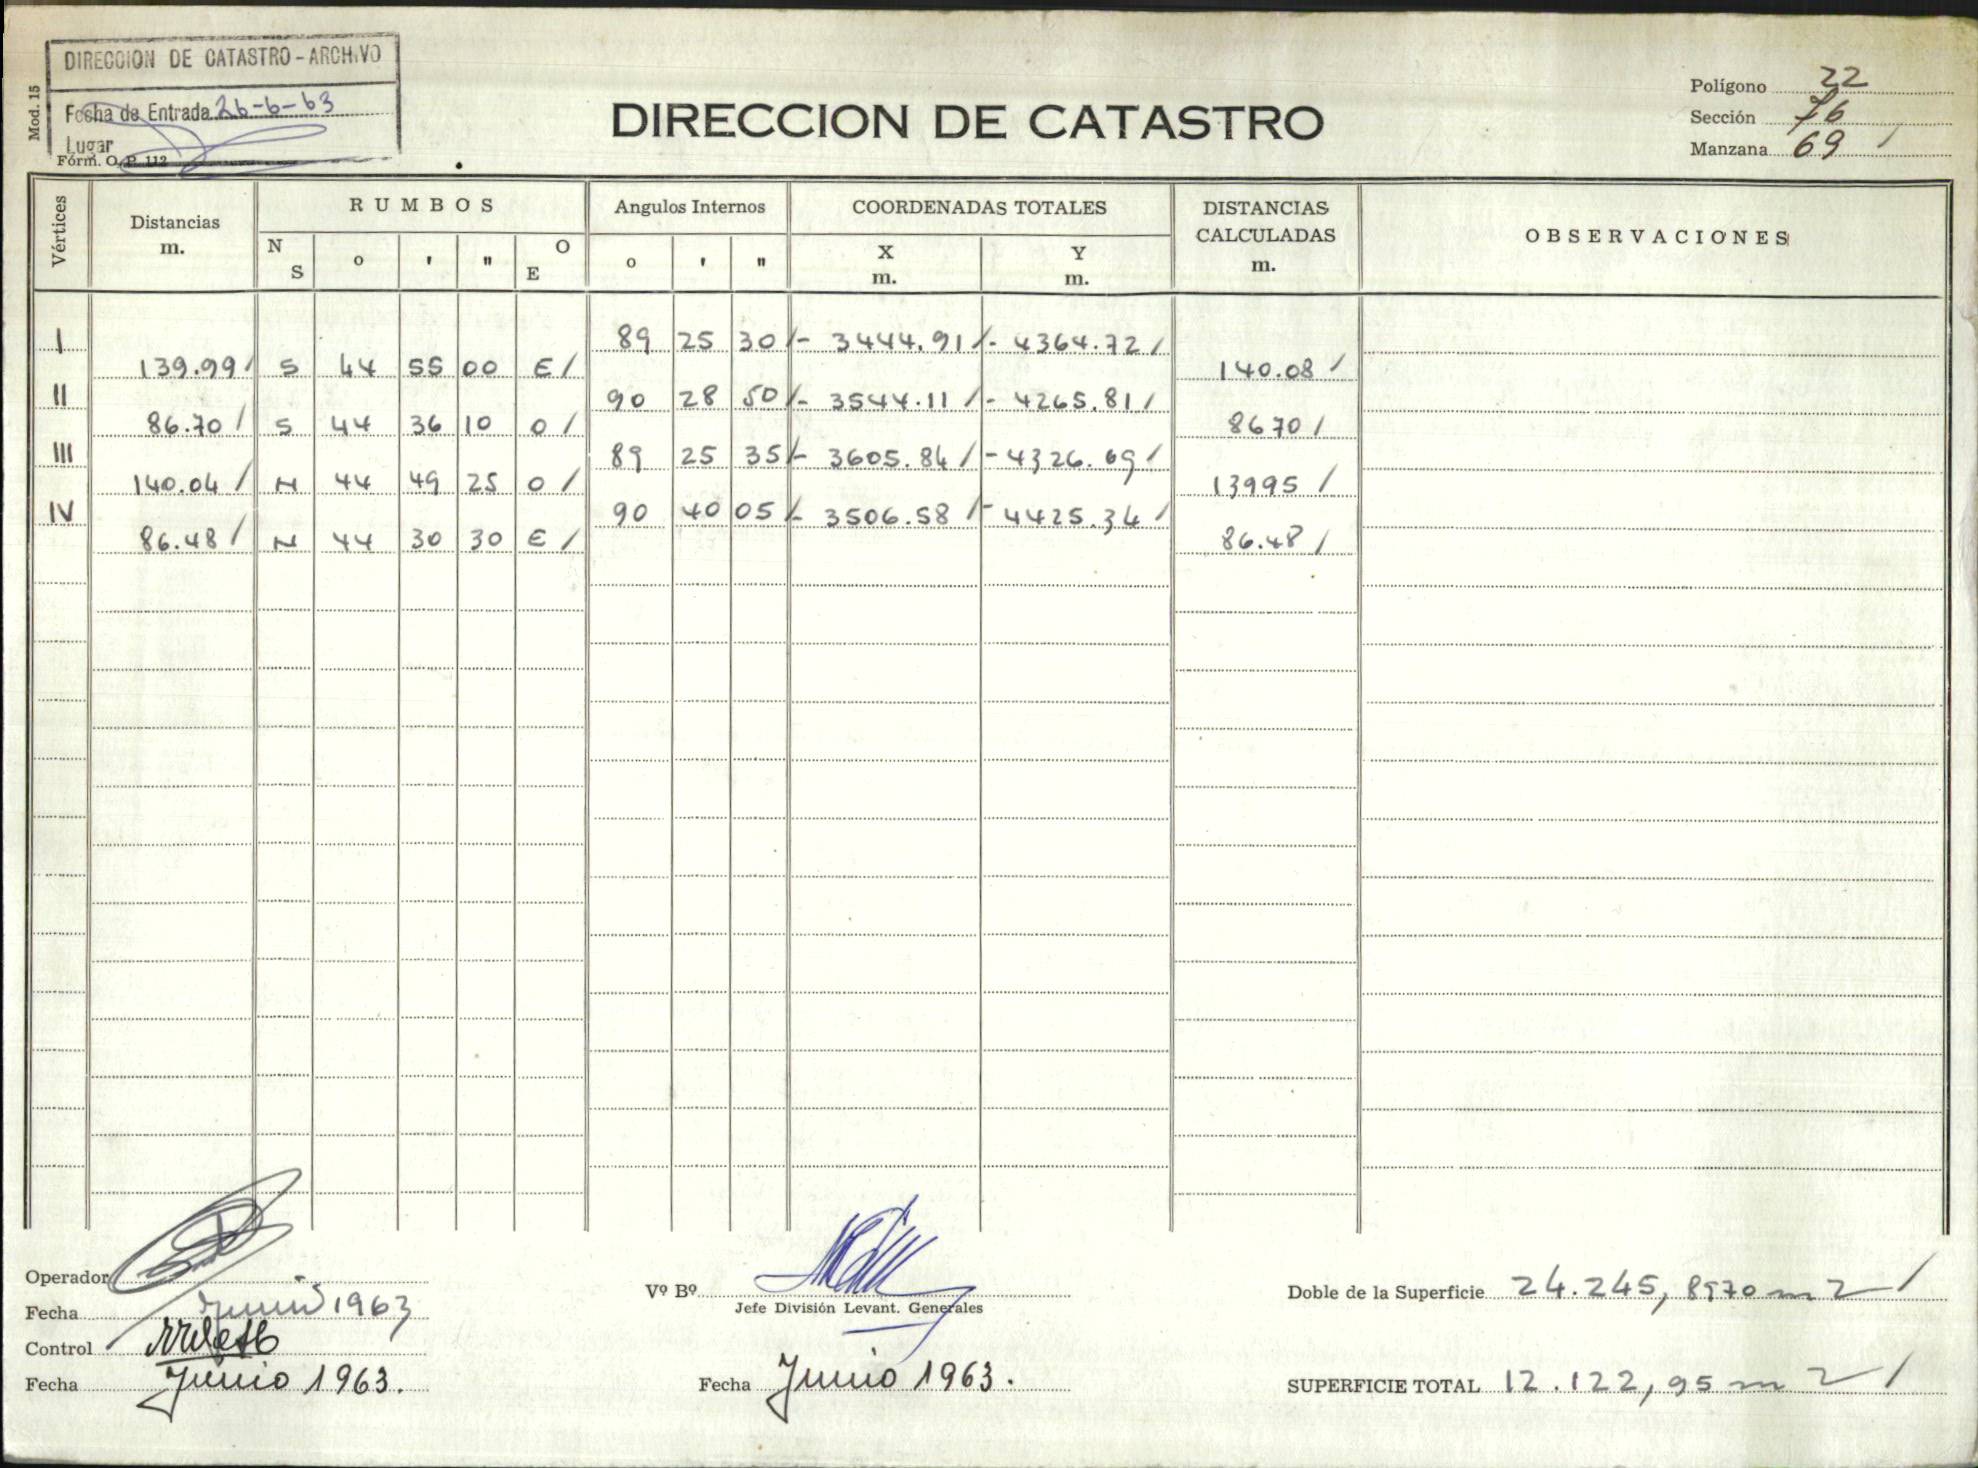 DIRECCION DE CATASTRO - ARCHIVO
Fecha de Entrada 26-6-63
Lugar
Mod. 15
Fórm. O. P. 112
DIRECCION DE CATASTRO
Polígono 22
Sección 76
Manzana 69 /
Vértices Distancias m. RUMBOS Angulos Internos COORDENADAS TOTALES DISTANCIAS CALCULADAS m. OBSERVACIONES
N S o ' " O E o ' " X m. Y m.
I 89 25 30 / - 3444.91 / - 4364.72 /
139.99 / S 44 55 00 E / 140.08 /
II 90 28 50 / - 3544.11 / - 4265.81 /
86.70 / S 44 36 10 O / 8670 /
III 89 25 35 / - 3605.84 / - 4326.69 /
140.04 / N 44 49 25 O / 13995 /
IV 90 40 05 / - 3506.58 / - 4425.34 /
86.48 / N 44 30 30 E / 86.48 /
Operador
Fecha Junio 1963
Control
Fecha Junio 1963.
Vº Bº
Jefe División Levant. Generales
Fecha Junio 1963.
Doble de la Superficie 24.245, 8970 m 2 /
SUPERFICIE TOTAL 12.122, 95 m 2 /